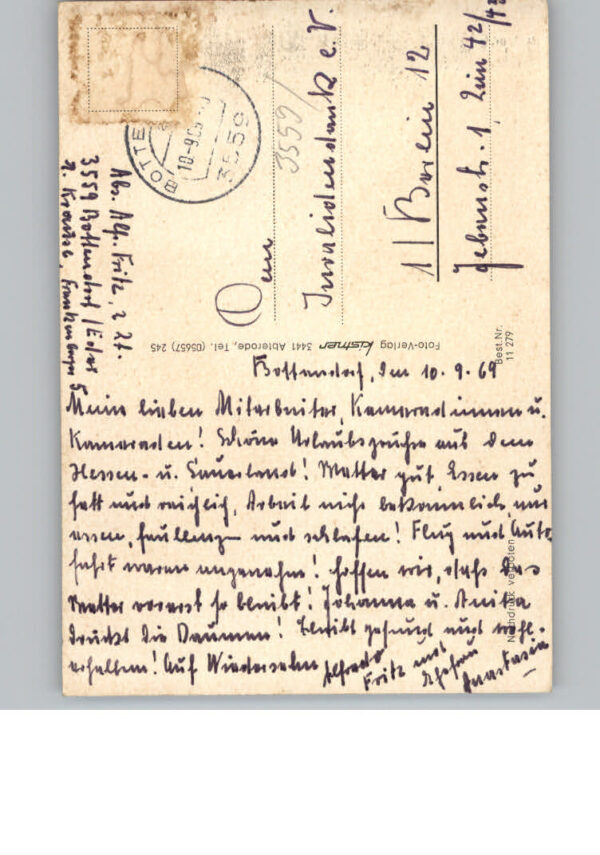 Bottendorf, den 10.9.69
Meine lieben Mitarbeiter, Kameradinnen u.
Kameraden! Schöne Urlaubsgrüße aus dem
Hessen- u. Sauerland! Wetter gut, Essen zu
fett und reichlich, Arbeit nicht bekömmlich, nur
essen, faullenzen und schlafen! Flug und Auto-
fahrt waren angenehm! Hoffen wir, daß das
Wetter vorerst so bleibt! Johanna u. Anita
drückt die Daumen! Bleibt gesund und wohl-
erhalten! Auf Wiedersehn Alfredo
Fritz und
Ehefrau
Anastasia
Abs. Alf. Fritz, z. Zt.
3559 Bottendorf/Eder
Frankenberger 5
BOTTE
10-9.69
3559
3559/
Dem
Invalidendank e.V.
1/ Berlin 12
Jebenstr. 1, Zim 42/43
Foto-Verlag kistner 3441 Abterode, Tel. (05657) 245
Best.Nr.
11 279
Nachdruck verboten